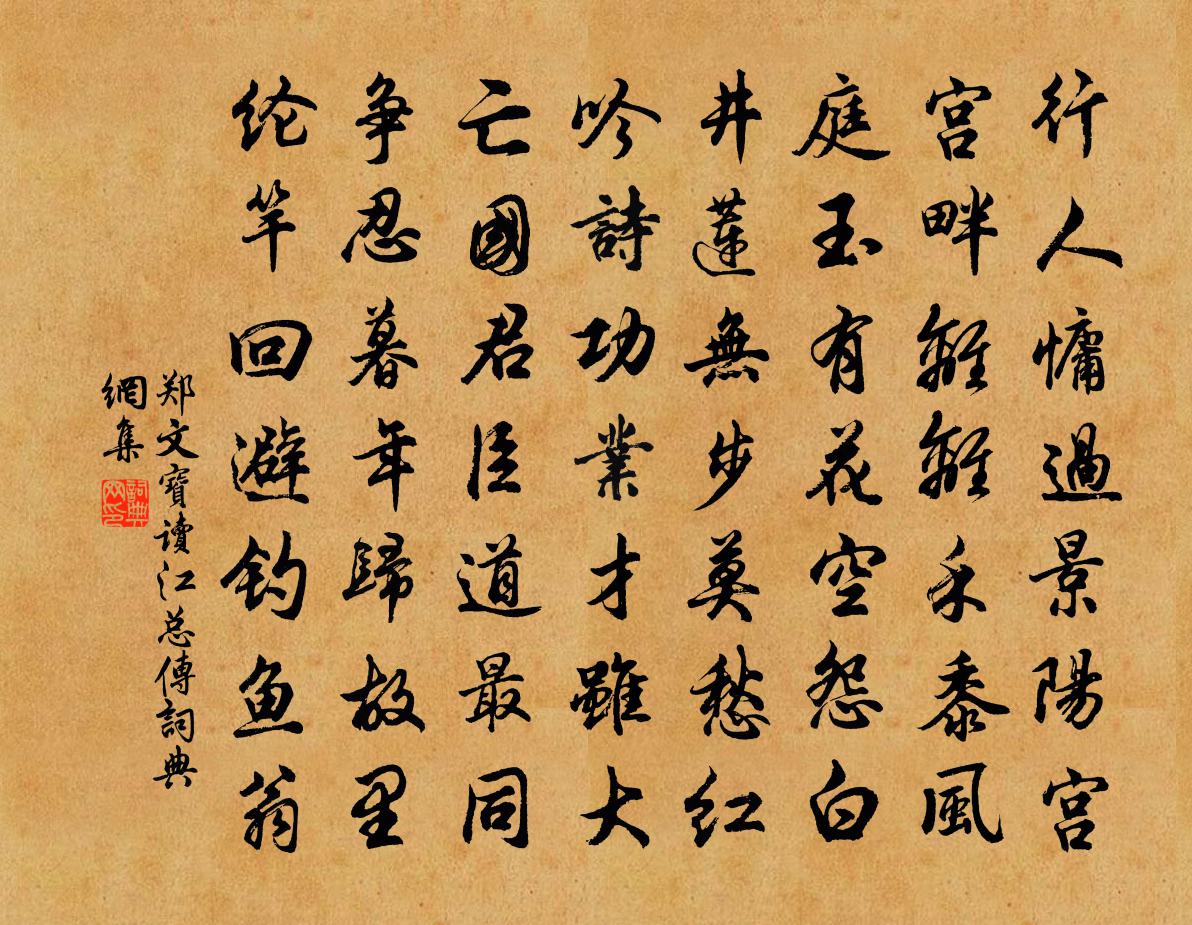 行人慵過景陽宫
宫畔離離禾黍風
庭玉有花空怨白
井蓮無步莫愁红
吟詩功業才雖大
亡國君臣道最同
争忍暮年歸故里
纶竿回避钓鱼翁
郑文寶讀江总傳詞典
網集
詞典
网印